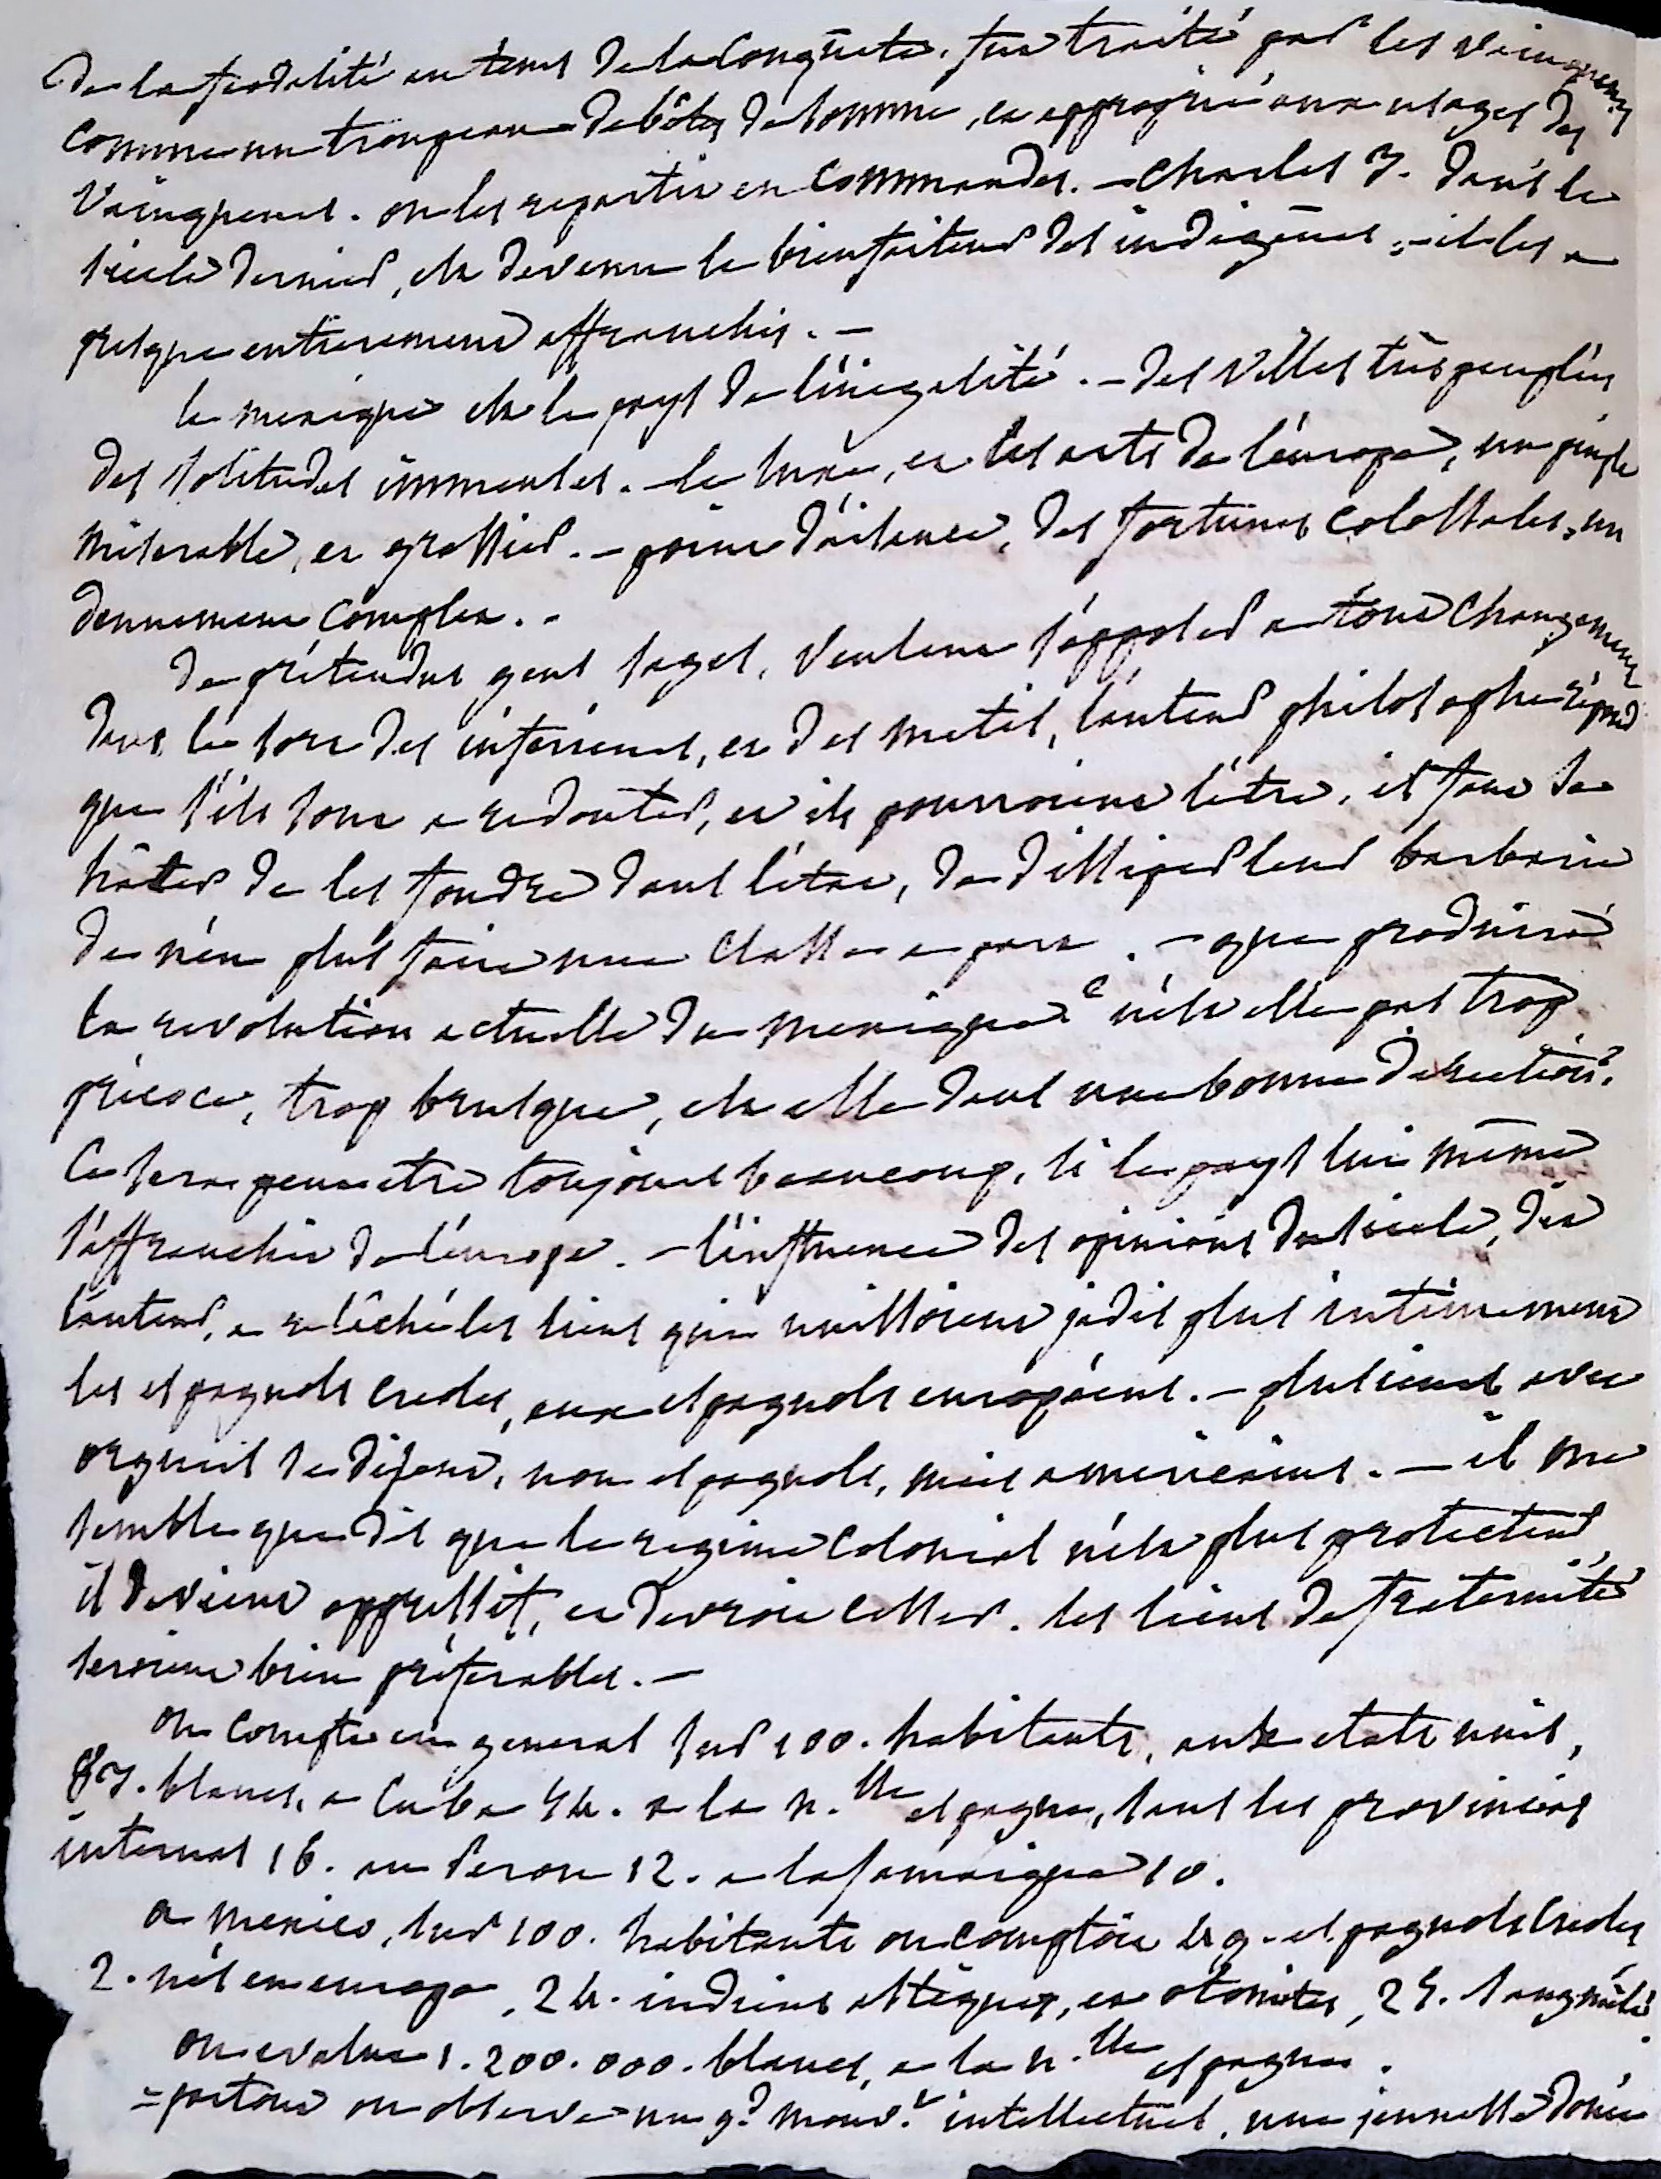 de la feodalité au tems de la conquête. fut traité par les vainqueurs
comme un troupeau de bêtes de somme, et approprié aux usages des
vainqueurs. on les repartit en commandes. — charles 3. dans le
siecle dernier, est devenu le bienfaiteur des indigênes, — il les a
presque entierement affranchis. —
le mexique est le pays de l'inégalité. — des villes très peuplées
des solitudes immenses. — le luxe, et les arts de l'europe, un peuple
miserable, et grossier. — point d'aisance, des fortunes colossales, un
denuement complet. -
de prétendus gens sages, veulent s'opposer a tout changement
dans le sort des inferieurs, et des metis, l'auteur philosophe répond
que s'ils sont a redouter, et ils pourroient l'être, il faut se
hâter de les fondre dans l'état, de dissiper leur barbarie
de n'en plus faire une classe a part. — que produira
la revolution actuelle du mexique? n'est elle pas trop
précoce, trop brusque, est elle dans une bonne direction?
ce sera peut etre toujours beaucoup, si le pays lui même
s'affranchit de l'europe. — l'influence des opinions du siecle, dit
l'auteur, a relâché les liens qui unissoient jadis plus intimement
les espagnols creoles, aux espagnols européens. — plusieurs avec
orgueil se disent, non espagnols, mais americains. — il me
semble que dès que le regime colonial n'est plus protecteur,
il devient oppressif, et devroit cesser. les liens de fraternité
seroient bien préférables. —
on compte en general sur 100. habitants, aux etats unis,
83. blancs, a Cuba 54. a la n.lle espagne, sans les provincias
internas 16. au Perou 12. a la Jamaique 10.
a mexico, sur 100. habitants on comptoit 49. espagnols creoles
2. nés en europe, 24. indiens astèques, et otomites, 25. sang mêlé.
on evalue 1.200.000. blancs, a la n.lle espagne.
= partout on observe un gd mouvt intellectuel, une jeunesse douée